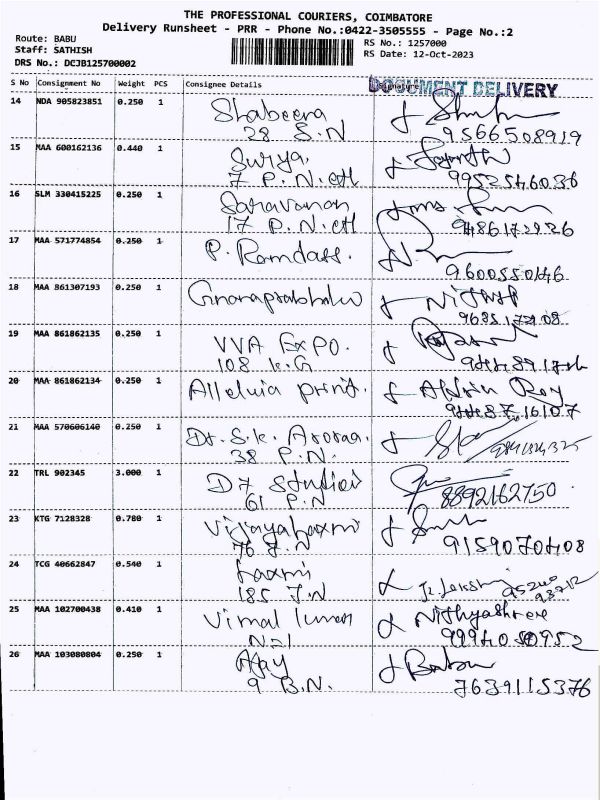 THE PROFESSIONAL COURIERS, COIMBATORE
Delivery Runsheet - PRR - Phone No.:0422-3505555 - Page No.:2
Route: BABU
Staff: SATHISH
DRS No.: DCJB125700002
RS No.: 1257000
RS Date: 12-Oct-2023
S No Consignment No Weight PCS Consignee Details Signature
DOCUMENT DELIVERY
14 NDA 905823851 0.250 1 Shabeera
28 S.N 9566508919
15 MAA 600162136 0.440 1 Surya.
7 P.N. 9952546036
16 SLM 330415225 0.250 1 Saravanan
17 P.N. 9486172926
17 MAA 571774854 0.250 1 P. Ramdass.
9600550146
18 MAA 861307193 0.250 1 Gnanaprabhakar
9685172108
19 MAA 861862135 0.250 1 VVA EXPO.
108 K.G
20 MAA 861862134 0.250 1 Alleluia print. Roy
21 MAA 570606140 0.250 1 Dr. S.K. Aroraa.
38 P.N.
22 TRL 902345 3.000 1 D7 Studio
61 P.N 8892162750
23 KTG 7128328 0.780 1 Vijayalaxmi
76 J.N 9159070408
24 TCG 40662847 0.540 1 Laxmi
185 J.N
25 MAA 102700438 0.410 1 Vimal Nithyashree
26 MAA 103080804 0.250 1 Ajay
9 B.N. 7639115376